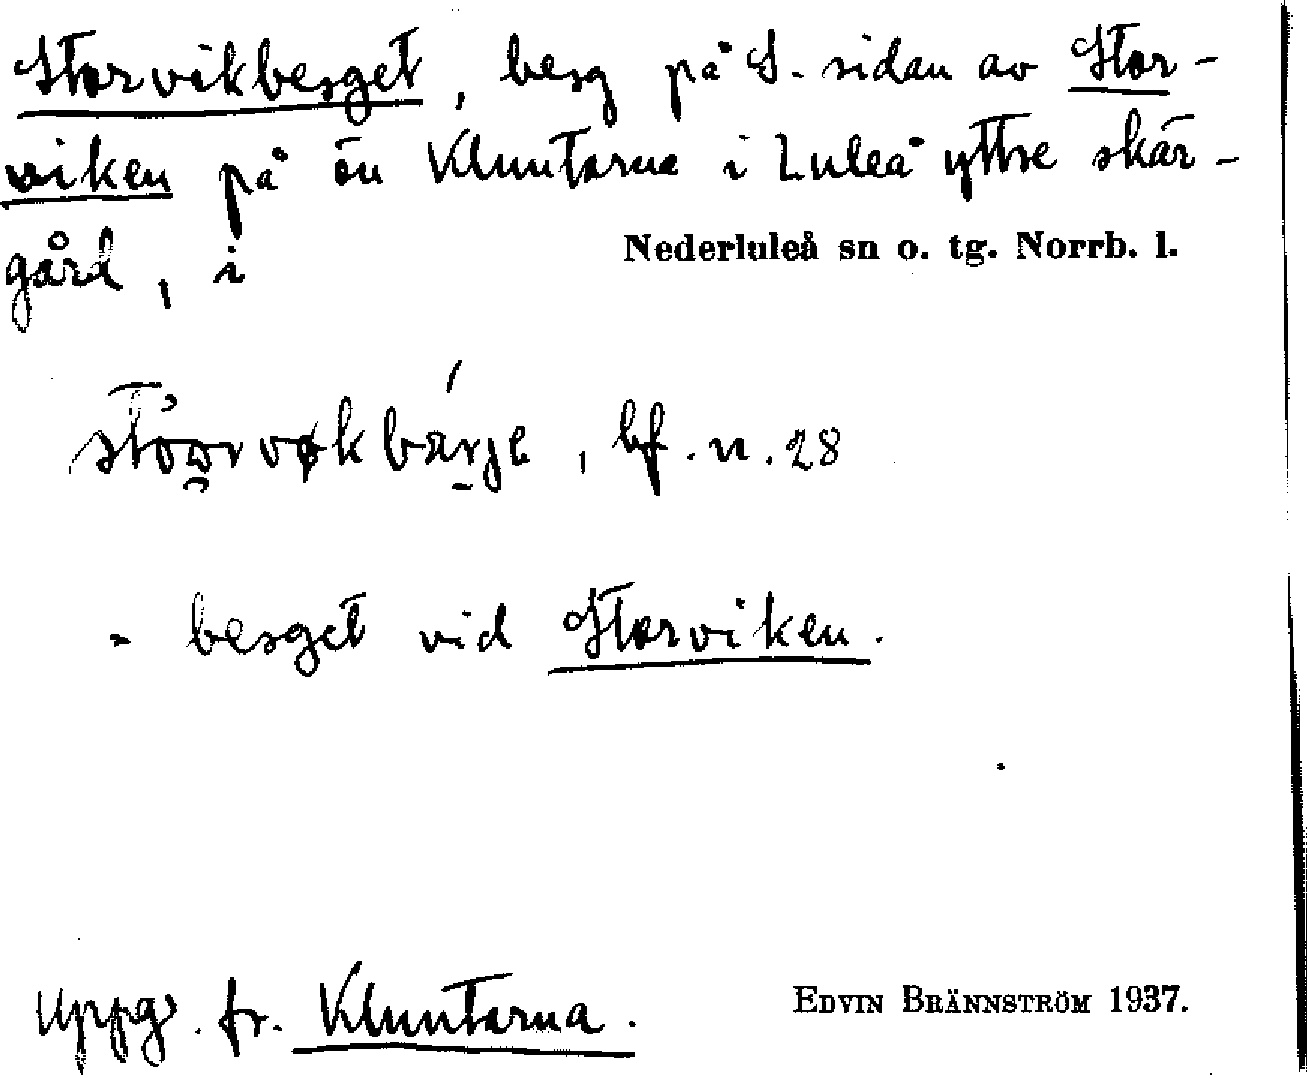 Storvikberget, berg på S. sidan av Stor-
viken på ön Kluntarna i Luleå yttre skär-
gård, i Nederluleå sn o. tg. Norrb. l.
bf. n. 28
= berget vid Storviken.
Uppg. fr. Kluntarna. EDVIN BRÄNNSTRÖM 1937.